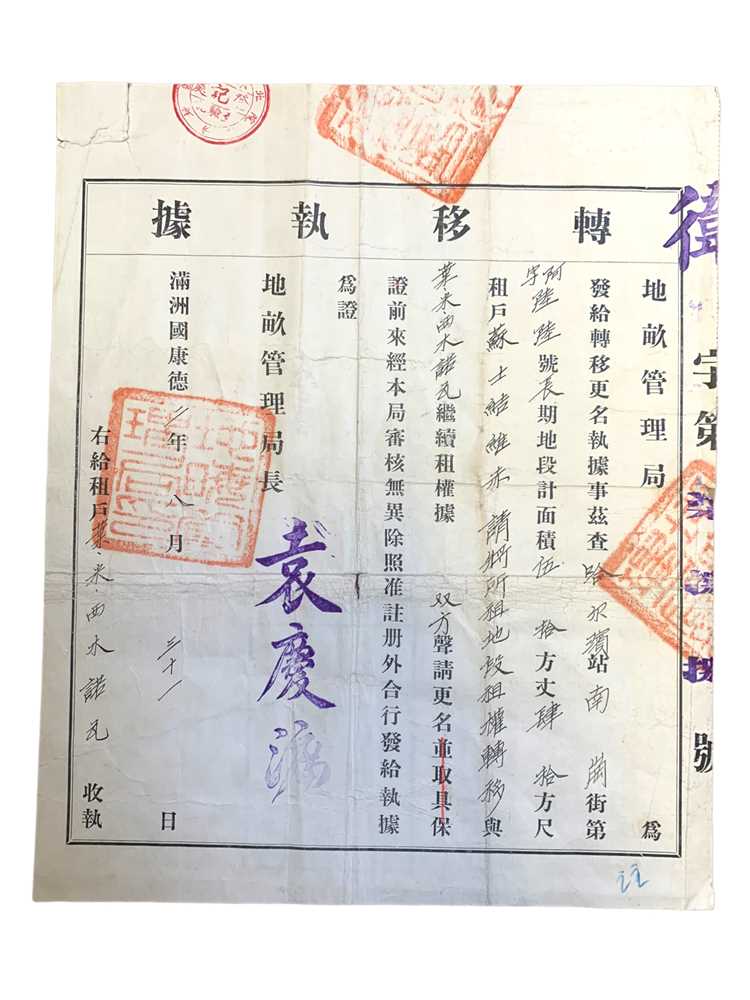 轉移執據
地畝管理局 為
發給轉移更名執據事茲查哈尔濱站南崗街第
阿字陸陸號長期地段計面積伍拾方丈肆拾方尺
租戶蘇士結維赤請將所租地段租權轉移與
葉米西木諾瓦繼續租權據双方聲請更名並取具保
證前來經本局審核無異除照准註册外合行發給執據
為證
地畝管理局長 袁慶
滿洲國康德二年八月三十一日
右給租戶葉米西木諾瓦收執
字第號
註
記